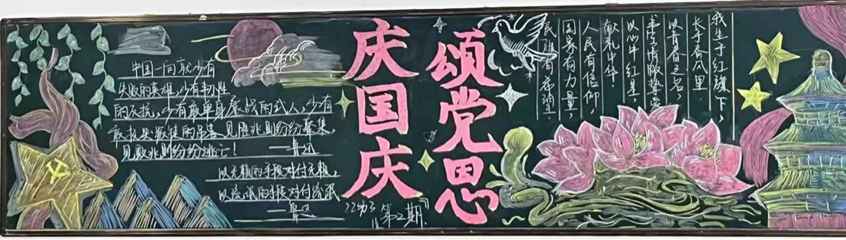 中国一向就少有
失败的英雄，少有韧性
的反抗，少有敢单身鏖战的武人，少有
敢抚哭叛徒的吊客；见胜兆则纷纷聚集，
见败兆则纷纷逃亡！
——鲁迅
以无赖的手段对付无赖，
以流氓的手段对付流氓
——鲁迅
庆国庆
颂党恩
第2期
我生于红旗下，
长于春风里
以青春之名，
以心中红星，
献礼中华！
人民有信仰，
国家有力量，
民族有希望